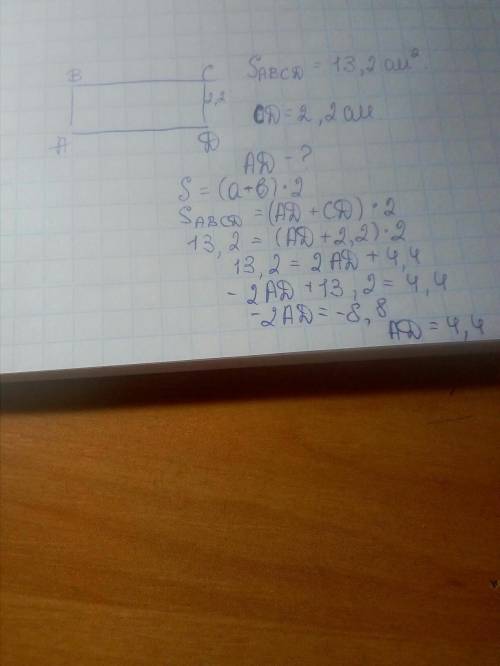 B C
2,2
A D
S ABCD = 13,2 см².
CD = 2,2 см
AD - ?
S = (a+b)·2
S ABCD = (AD + CD)·2
13,2 = (AD + 2,2)·2
13,2 = 2AD + 4,4
- 2AD + 13,2 = 4,4
- 2AD = - 8,8
AD = 4,4